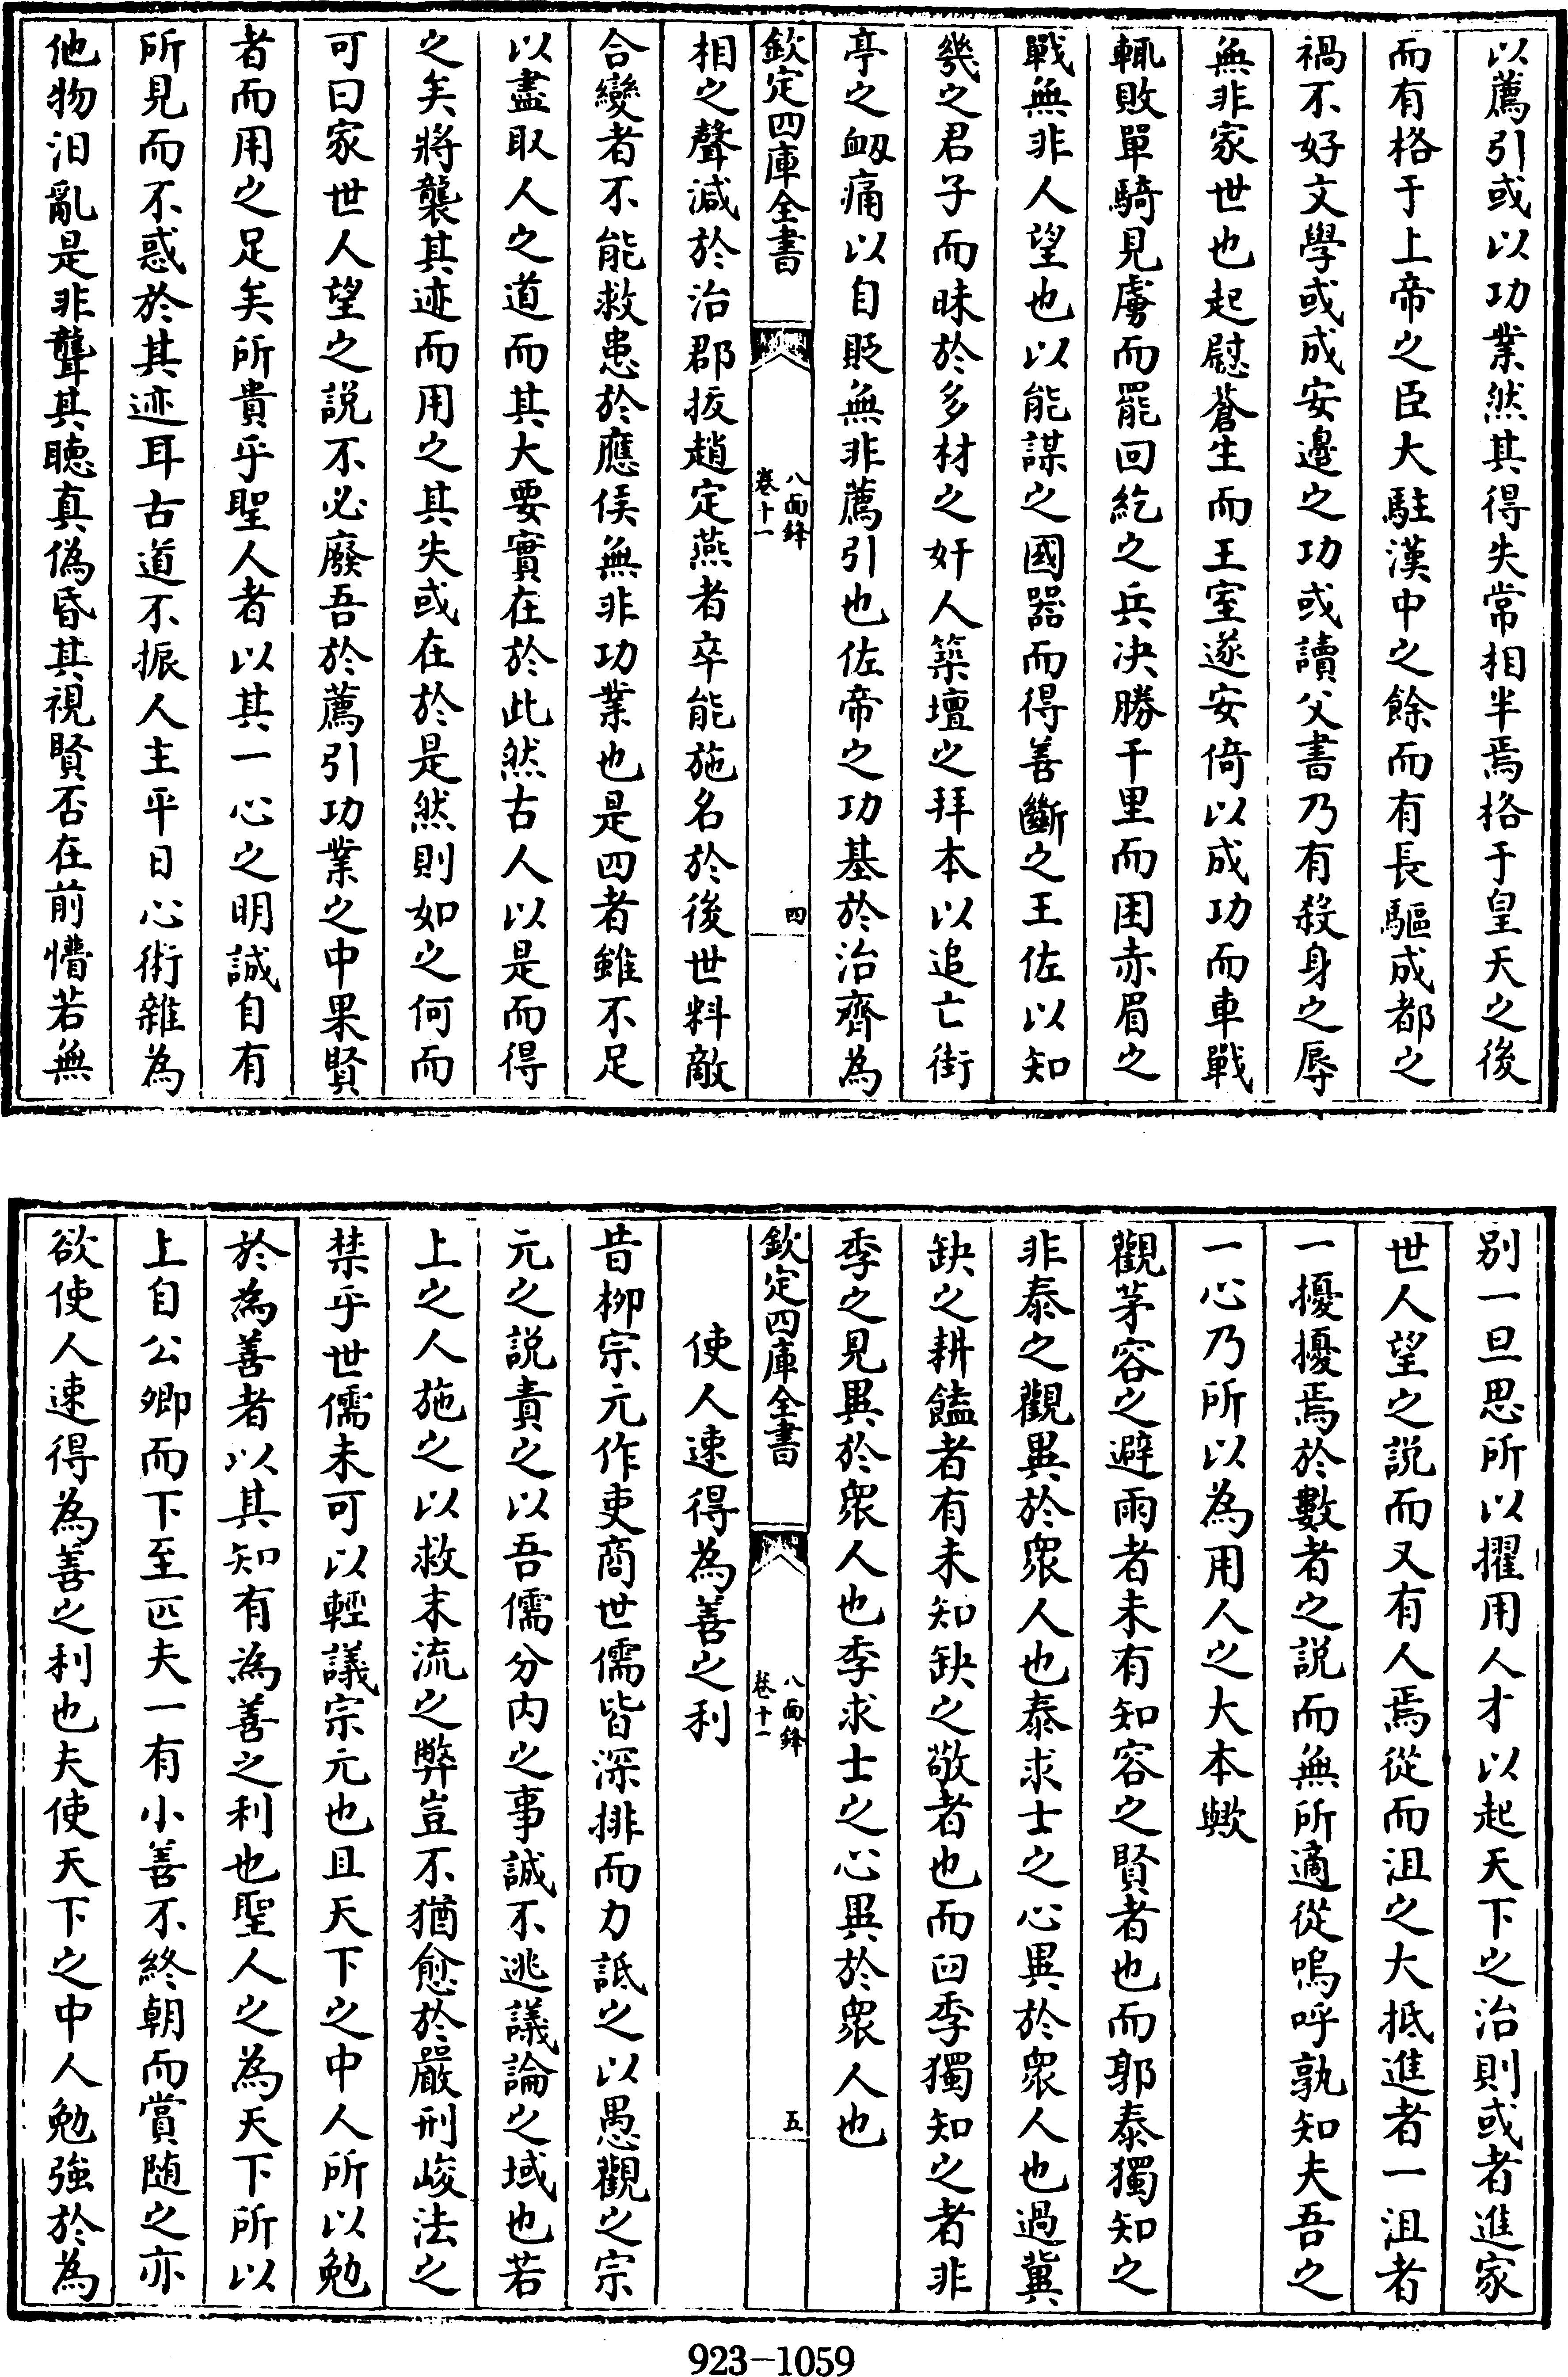 以薦引或以功業然其得失常相半焉格于皇天之後
而有格于上帝之臣大駐漢中之餘而有長驅成都之
禍不好文學或成安邊之功或讀父書乃有殺身之辱
無非家世也起慰蒼生而王室遂安倚以成功而車戰
輒敗單騎見虜而罷回紇之兵決勝千里而困赤眉之
戰無非人望也以能謀之國器而得善斷之王佐以知
幾之君子而昧於多材之奸人築壇之拜本以追亡街
亭之衂痛以自貶無非薦引也佐帝之功基於治齊為
欽定四庫全書
八面鋒
卷十一
四
相之聲減於治郡拔趙定燕者卒能施名於後世料敵
合變者不能救患於應侯無非功業也是四者雖不足
以盡取人之道而其大要實在於此然古人以是而得
之矣將襲其迹而用之其失或在於是然則如之何而
可曰家世人望之說不必廢吾於薦引功業之中果賢
者而用之足矣所貴乎聖人者以其一心之明誠自有
所見而不惑於其迹耳古道不振人主平日心術雜為
他物汨亂是非聾其聽真偽昏其視賢否在前懵若無
別一旦思所以擢用人才以起天下之治則或者進家
世人望之說而又有人焉從而沮之大抵進者一沮者
一擾擾焉於數者之說而無所適從嗚呼孰知夫吾之
一心乃所以為用人之大本歟
觀茅容之避雨者未有知容之賢者也而郭泰獨知之
非泰之觀異於眾人也泰求士之心異於眾人也過冀
缺之耕饁者有未知缺之敬者也而臼季獨知之者非
季之見異於眾人也季求士之心異於眾人也
欽定四庫全書
八面鋒
卷十一
五
使人速得為善之利
昔柳宗元作吏商世儒皆深排而力詆之以愚觀之宗
元之說責之以吾儒分內之事誠不逃議論之域也若
上之人施之以救末流之弊豈不猶愈於嚴刑峻法之
禁乎世儒未可以輕議宗元也且天下之中人所以勉
於為善者以其知有為善之利也聖人之為天下所以
上自公卿而下至匹夫一有小善不終朝而賞随之亦
欲使人速得為善之利也夫使天下之中人勉強於為
923-1059